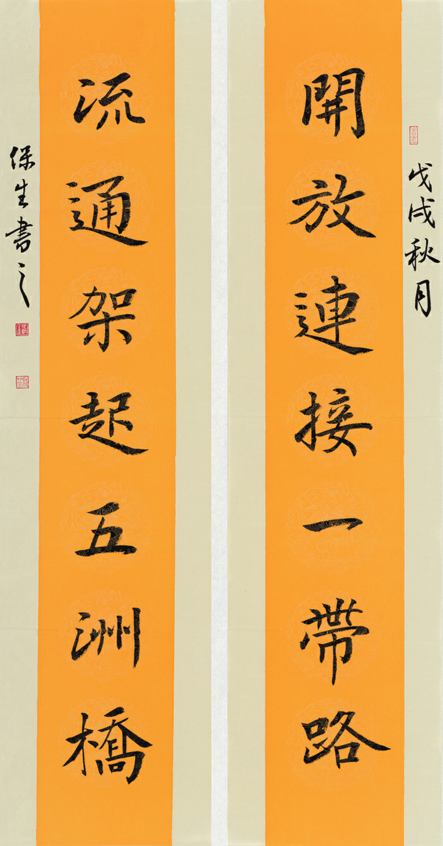 戊戌秋月
開放連接一帶路
流通架起五洲橋
保生書之